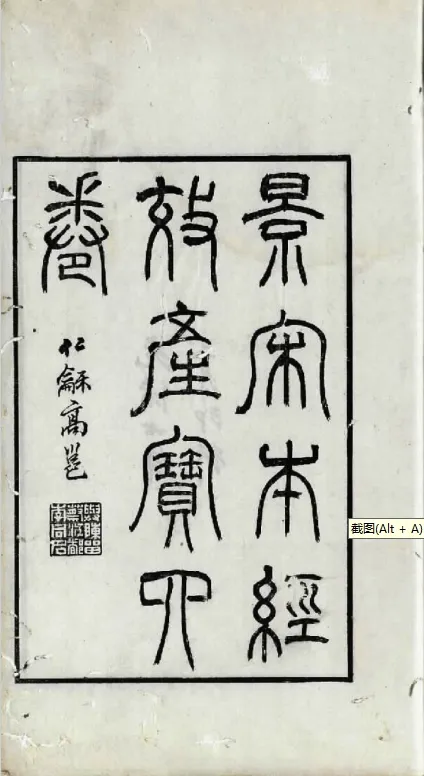 景宋本經
效產寶四
卷
仁龢高邕
截图(Alt + A)